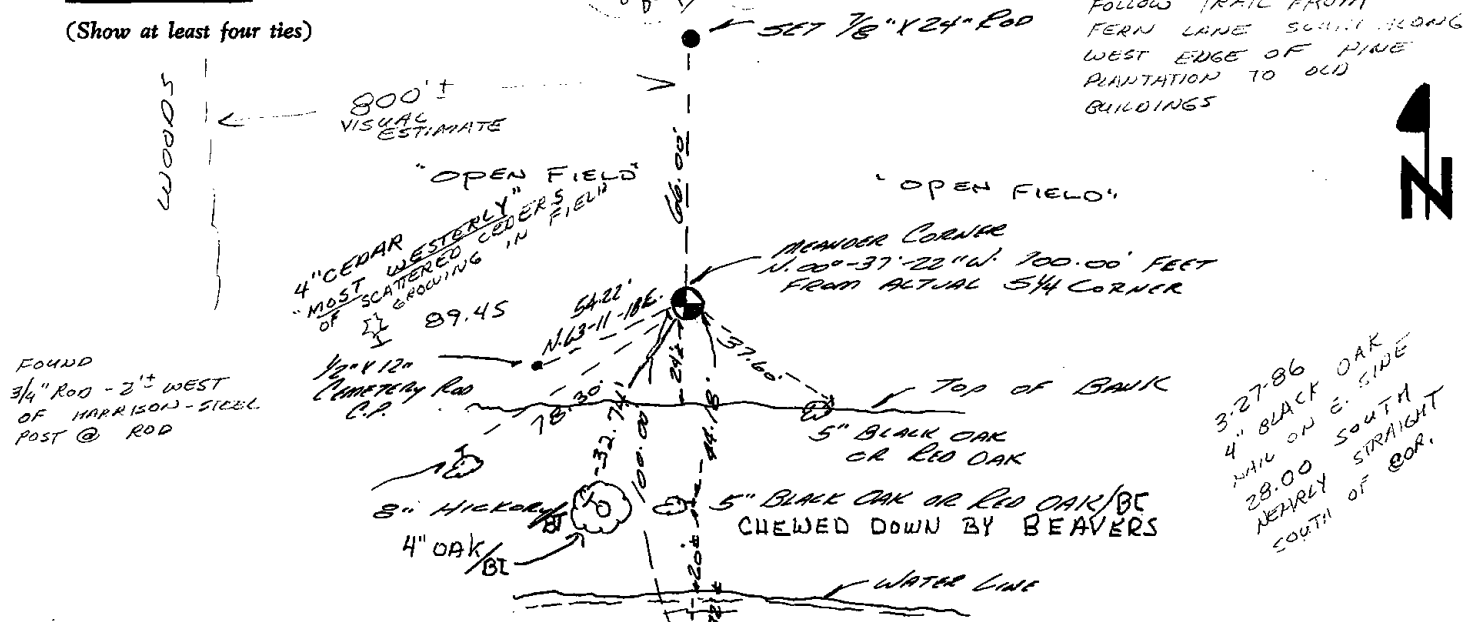 (Show at least four ties)
SET 7/8" X 24" ROD
FOLLOW TRAIL FROM
FERN LANE
WEST EDGE OF PINE
PLANTATION TO OLD
BUILDINGS
WOODS
800'±
VISUAL
ESTIMATE
66.00'
N
"OPEN FIELD"
"OPEN FIELD"
4" CEDAR
"MOST WESTERLY"
OF SCATTERED CEDERS
GROWING IN FIELD
89.45
MEANDER CORNER
N.00°-37'-22"W. 700.00' FEET
FROM ACTUAL S1/4 CORNER
54.22'
N.63-11-18E.
37.60'
24'±
FOUND
3/4" ROD - 2'± WEST
OF HARRISON-STEEL
POST @ ROD
1/2" X 12"
CEMETERY ROD
C.P.
78.30'
32.74'
100.00'
44.18'
TOP OF BANK
5" BLACK OAK
OR RED OAK
3-27-86
4" BLACK OAK
NAIL ON E. SIDE
28.00 SOUTH
NEARLY STRAIGHT
SOUTH OF COR.
8" HICKORY/
BT
4" OAK/BT
5" BLACK OAK OR RED OAK/BT
CHEWED DOWN BY BEAVERS
20'±
WATER LINE